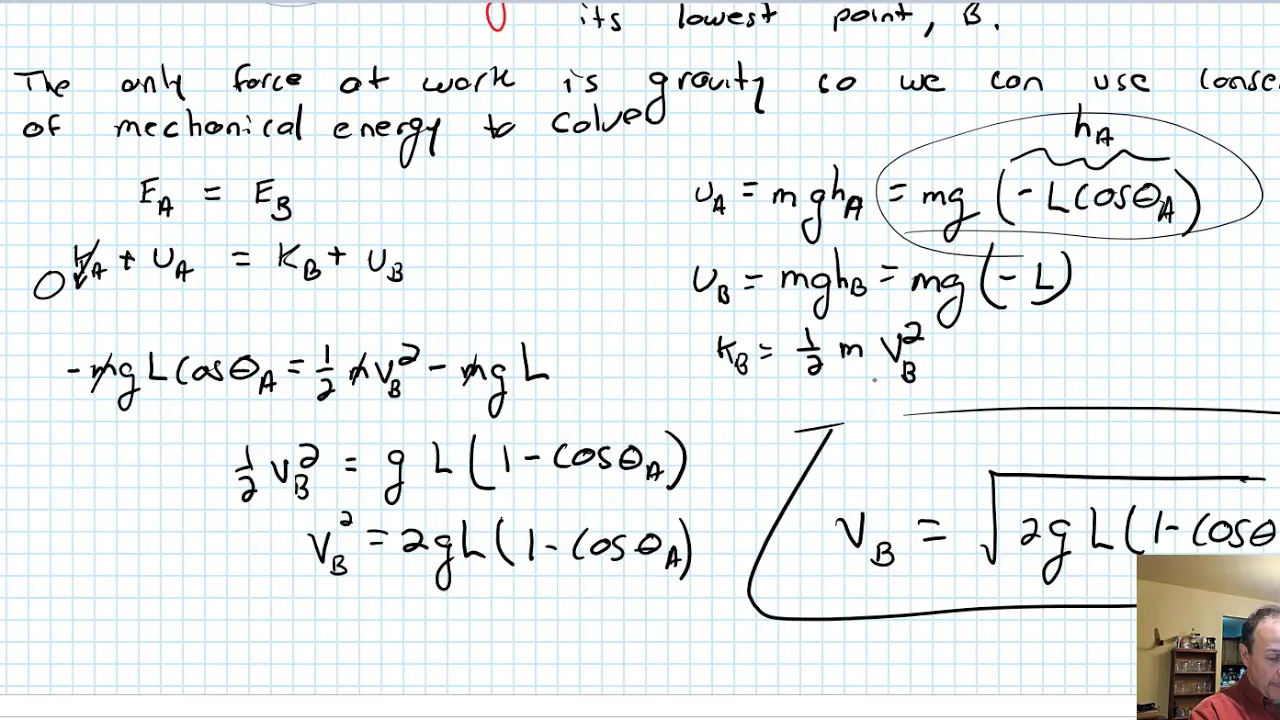 its lowest point, B.
The only force at work is gravity so we can use conse
of mechanical energy to solved
E_A = E_B
K_A + U_A = K_B + U_B
0
-mgL cosθ_A = 1/2 mv_B^2 - mgL
1/2 v_B^2 = gL(1 - cosθ_A)
v_B^2 = 2gL(1 - cosθ_A)
h_A
U_A = mgh_A = mg(-L cosθ_A)
U_B = mgh_B = mg(-L)
K_B = 1/2 m v_B^2
v_B = √2gL(1 - cosθ